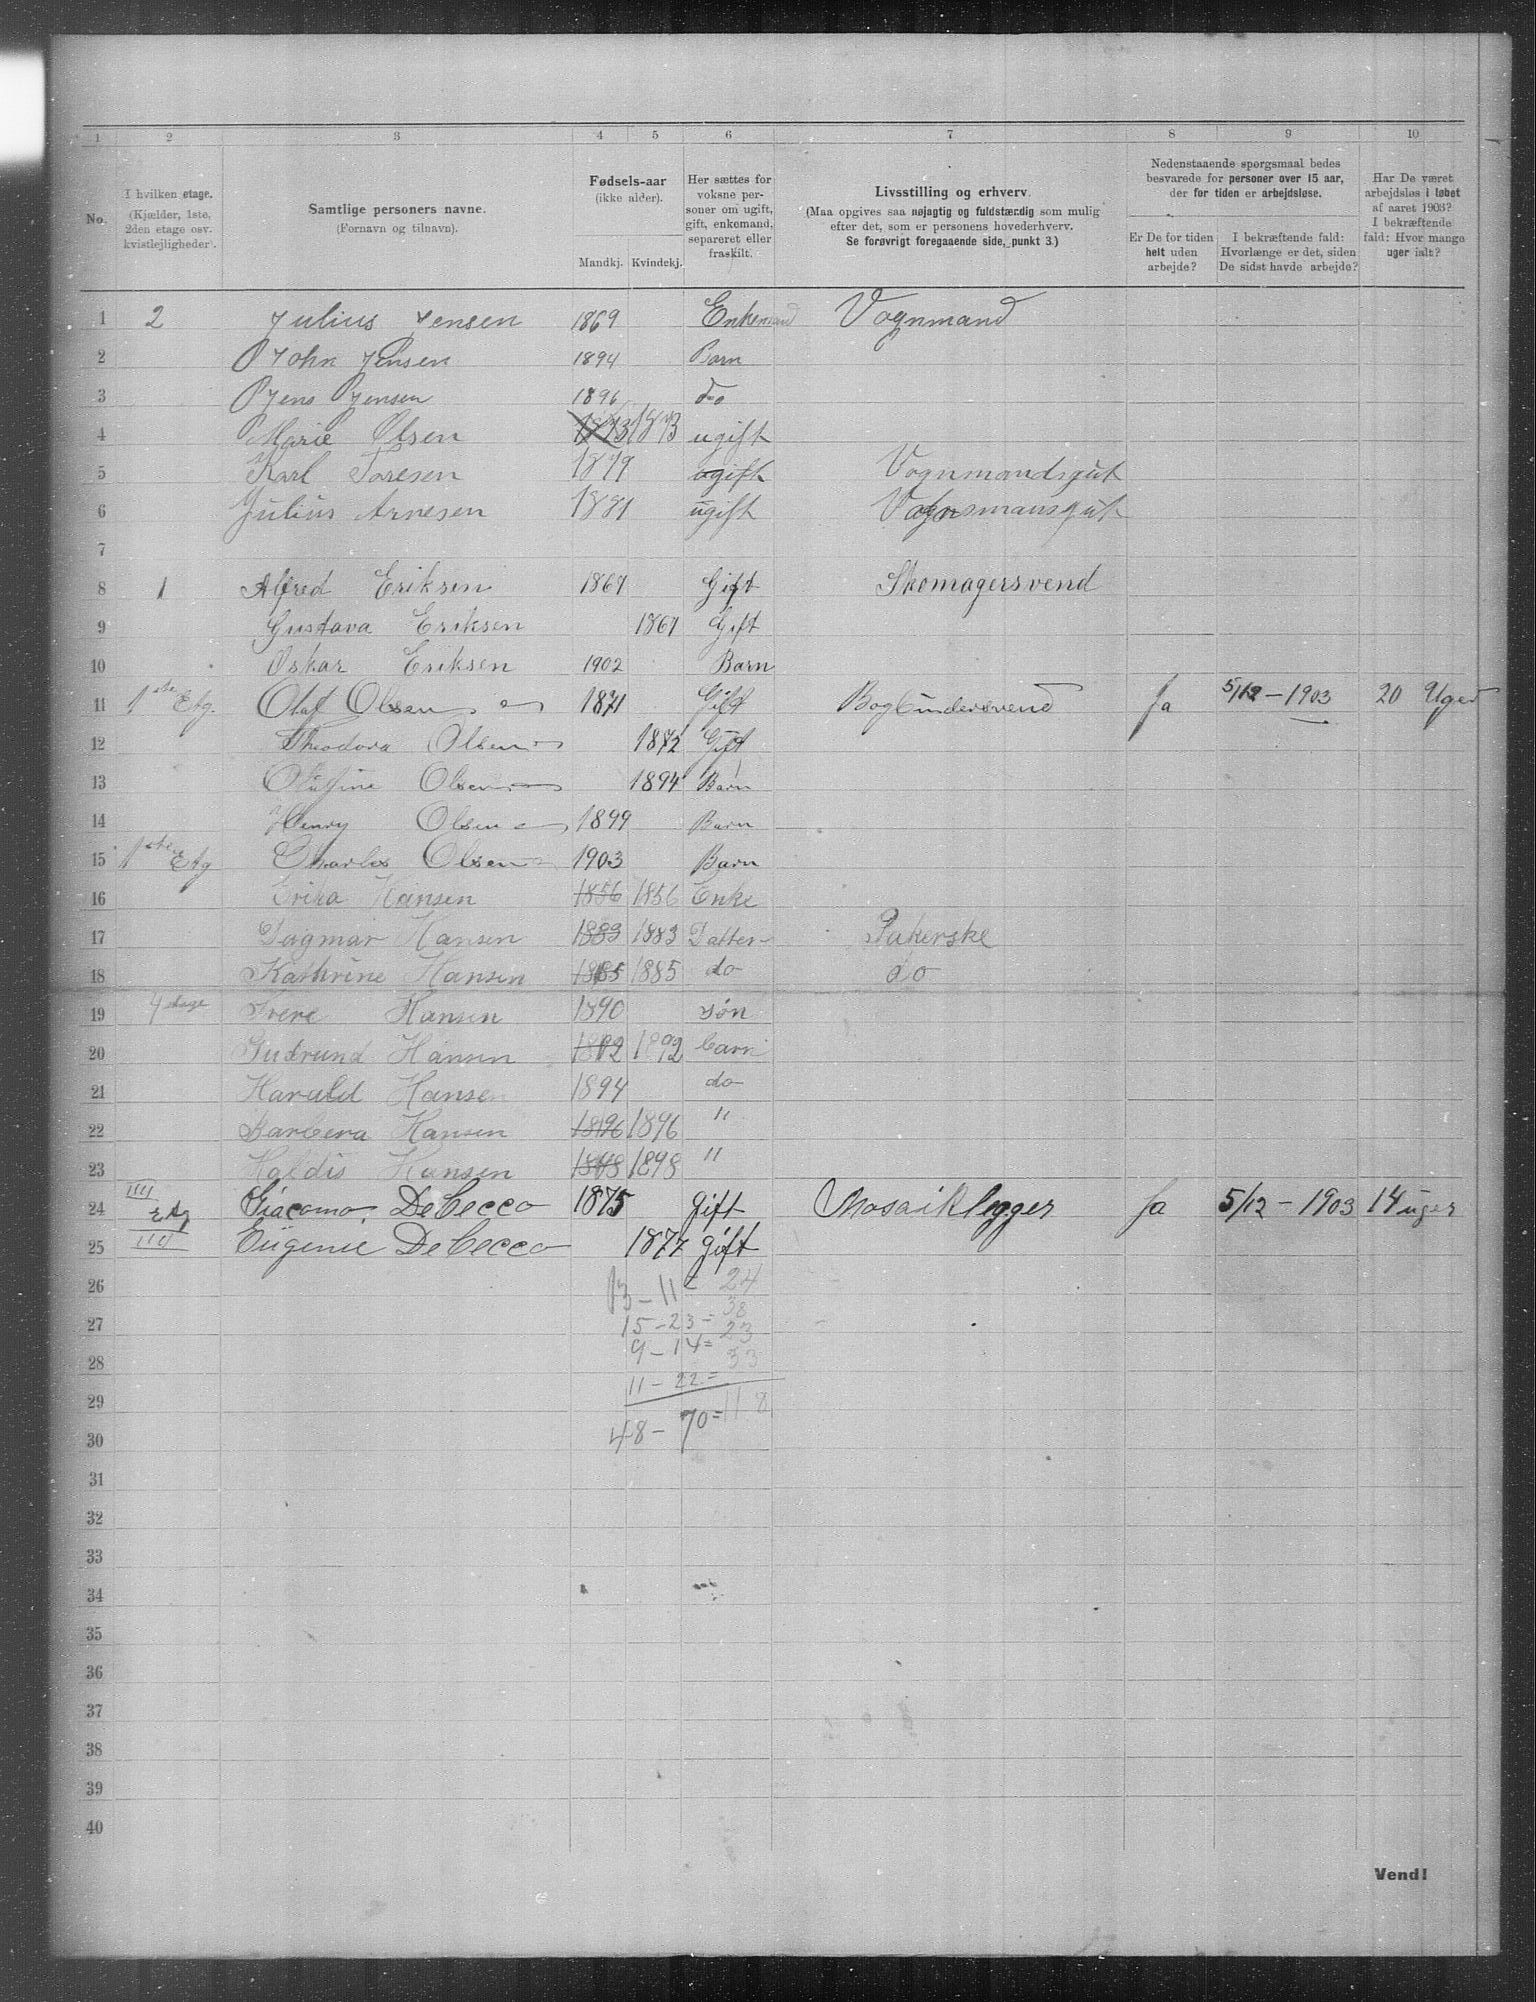 1 2 3 4 5 6 7 8 9 10
No.
I hvilken etage.
(Kjælder, 1ste,
2den etage osv.
kvistlejligheder).
Samtlige personers navne.
(Fornavn og tilnavn).
Fødsels-aar
(ikke alder).
Mandkj. Kvindekj.
Her sættes for
voksne per-
soner om ugift,
gift, enkemand,
separeret eller
fraskilt.
Livsstilling og erhverv.
(Maa opgives saa nøjagtig og fuldstændig som mulig
efter det, som er personens hovederhverv.
Se forøvrigt foregaaende side, punkt 3.)
Nedenstaaende spørgsmaal bedes
besvarede for personer over 15 aar,
der for tiden er arbejdsløse.
Er De for tiden
helt uden
arbejde?
I bekræftende fald:
Hvorlænge er det, siden
De sidst havde arbejde?
Har De været
arbejdsløs i løbet
af aaret 1903?
I bekræftende
fald: Hvor mange
uger ialt?
1 2 Julius Jensen 1869 Enkemand Vognmand
2 John Jensen 1894 Barn
3 Jens Jensen 1896 do
4 Marie Olsen 1873 1873 ugift
5 Karl Toresen 1879 ugift Vognmandsgut
6 Julius Arnesen 1881 ugift Vognsmansgut
7
8 1 Alfred Eriksen 1867 Gift Skomagersvend
9 Gustava Eriksen 1867 Gift
10 Oskar Eriksen 1902 Barn
11 1ste Etg. Olaf Olsen 1871 Gift Bogbindersvend Ja 5/12 - 1903 20 Uger
12 Theodora Olsen 1872 Gift
13 Olufine Olsen 1894 Barn
14 Henry Olsen 1899 Barn
15 1ste Etg Charles Olsen 1903 Barn
16 Erika Hansen 1856 1856 Enke
17 Dagmar Hansen 1883 1883 Datter
18 Kathrine Hansen 1885 1885 do do
19 4 etage Hansen 1890 søn
20 Gudrund Hansen 1892 1892 barn
21 Harald Hansen 1894 do
22 Barbera Hansen 1896 1896 "
23 Haldis Hansen 1898 1898 "
24 IIII Etg Giacomo DeCecco 1875 gift Mosaiklegger Ja 5/12 - 1903 14 uger
25 IIII Eugenie DeCecco 1877 gift
26 13 - 11 = 24
27 15 - 23 = 38
28 9 - 14 = 23
29 11 - 22 = 33
30 48 - 70 = 118
31
32
33
34
35
36
37
38
39
40
Vend!